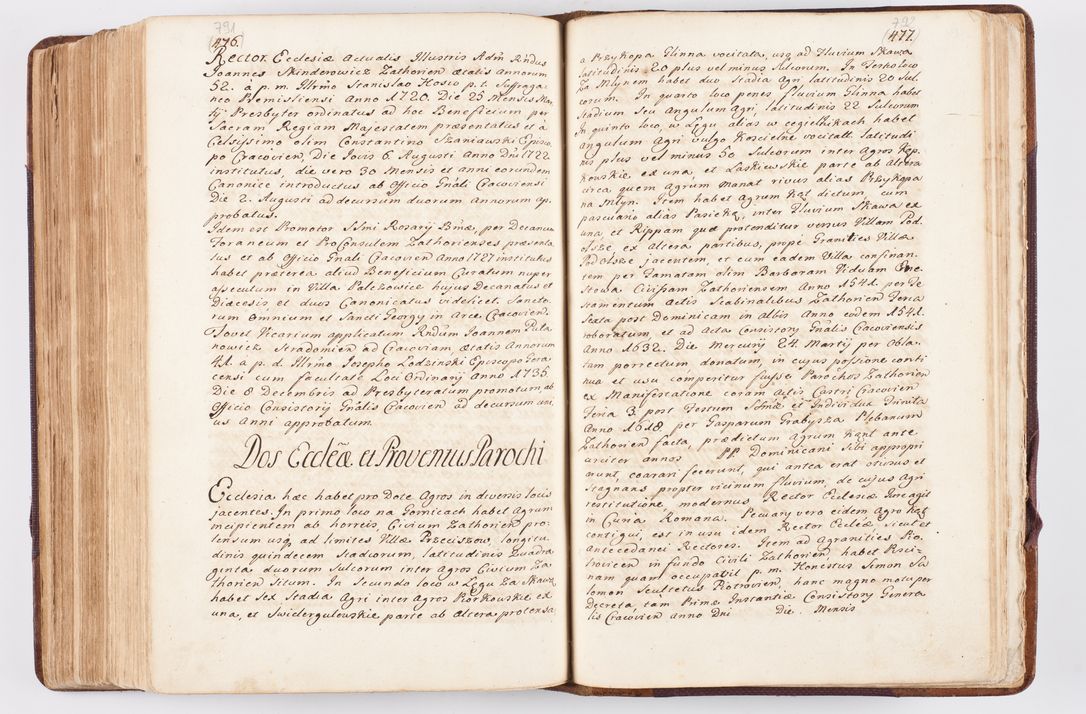 791
476.
Rector Ecclesiæ actualis Illustris Adm̃ Rñdus
Joannes Skinderowicz Zathorien ætatis Annorum
52. a p. m. Illrmo Stanislao Hosio p. t. Suffraga-
neo Premisliensi Anno 1720. Die 25 Mensis Mar-
tij Presbyter ordinatus ad hoc Beneficium per
Sacram Regiam Majestatem præsentatus et à
Celsissimo olim Constantino Szaniawski Episco-
po Cracovien, Die Jovis 6. Augusti Anno Dni 1722
institutus, die vero 30 Mensis et anni eorundem
Canonice introductus ab Officio Gnali Cracoviensi
Die 2. Augusti ad decursum duorum Annorum ap-
probatus.
Idem est Promotor Ssmi Rosarij Bmæ, per Decanum
Foraneum et ProConsulem Zathorienses præsenta-
tus et ab Officio Gnali Cracovien Anno 1727 institutus
habet præterea aliud Beneficium Curatum nuper
assecutum in Villa Palczowice hujus Decanatus et
Diæcesis et duos Canonicatus videlicet. Sancto-
rum Omnium et Sancti Georgy in Arce Cracovien.
Fovet Vicarium applicatum Rndum Joannem Puta-
nowicz Stradomien ad Cracoviam Ætatis Annorum
41. à p. d. Illrmo Josepho Lodzinski Episcopo Gera-
censi cum facultate Loci Ordinarij Anno 1735
Die 8 Decembris ad Presbyteratum promotum ab
Officio Consistorij Gnalis Cracovien ad decursum uni-
us Anni approbatum
Dos Ecclẽæ et Proventus Parochi
Ecclesia hæc habet pro Dote Agros in diversis locis
jacentes. In primo loco na Gornicach habet Agrum
incipientem ab horreis, Civium Zathorien pro-
tensum usq ad limites Villæ Przeciszow, longitu-
dinis quindecem Stadiorum, latitudinis Quadra-
ginta duorum Sulcorum inter Agros Civium Za-
thorien Situm. In Secundo loco w Łęgu za Skawą
habet Sex Stadia Agri inter Agros Piorkowskie ex
una, et Swidergulowskie parte ab Altera protensa
792
477.
a Przykopa Glinna vocitata, usq ad Fluvium Skawa
latitudinis 20 plus vel minus Sulcorum. In Tertio loco
za Młynem habet duo Stadia Agri latitudinis 20 Sul-
corum. In quarto loco penes fluvium Glinna habet
Stadium Seu Angulum Agri latitudinis 22 Sulcorum
In quinto loco, w Łęgu alias w cegielnikach habet
angulum Agri vulgo Koscielne vocitatt. latitudi
nis plus vel minus 50 Sulcorum inter Agros Kęp-
kowskie ex una, et Laskiewskie parte ab altera
circa quem Agrum manat rivus alias Przykopa
na Młyn. Item habet Agrum Kąt dictum, cum
pascuario alias Pasieką, inter Fluvium Skawa ex
una, et Rippam quæ protenditur versus Villam Pod-
olsze, ex altera partibus, propè Granities Villæ
Podolsze jacentem, et cum eadem Villa confinan-
tem per Famatam olim Barbaram Viduam
Civissam Zathoriensem Anno 1541. per Te-
stamentum Actis Scabinalibus Zathorien Feria
Sexta post Dominicam in Albis Anno eodem 1541.
roboratum, et ad Acta Consistory Gnalis Cracoviensis
Anno 1632. Die Mercurij 24. Martij per Obla-
tam porrectum donatum, in cujus possione conti
nua et usu comperitur fuisse Parochos Zathorien
ex Manifestatione coram Actis Castri Cracovien
Feria 3. post Festum Sctmæ et Individuæ Trinita
Anno 1618. per Gasparum Grabysza Plebanum
Zathorien facta, prædictum agrum Kąnt ante
circiter annos PP Dominicani Sibi appropri
arunt, coarari fecerunt, qui antea erat otiosus et
Stagnans propter vicinum fluvium, de cujus Agri
restitutione, modernus Rector Ecclesiæ Sive agit
in Curia Romana. Pecuary vero eidem Agro Kąt
contigui, est in usu idem Rector Ecclæ, sicut et
Antecedanei Rectores. Item ad Agranities Pio-
trovicen in fundo Civili Zathorien, habet
nam quam occupavit p. m. Honestus Simon Sa-
lomon Scultetus Piotrovien, hanc magno motu per
Decreta, tam Primæ Instantiæ Consistory Genera
lis Cracovien anno Dni Die Mensis